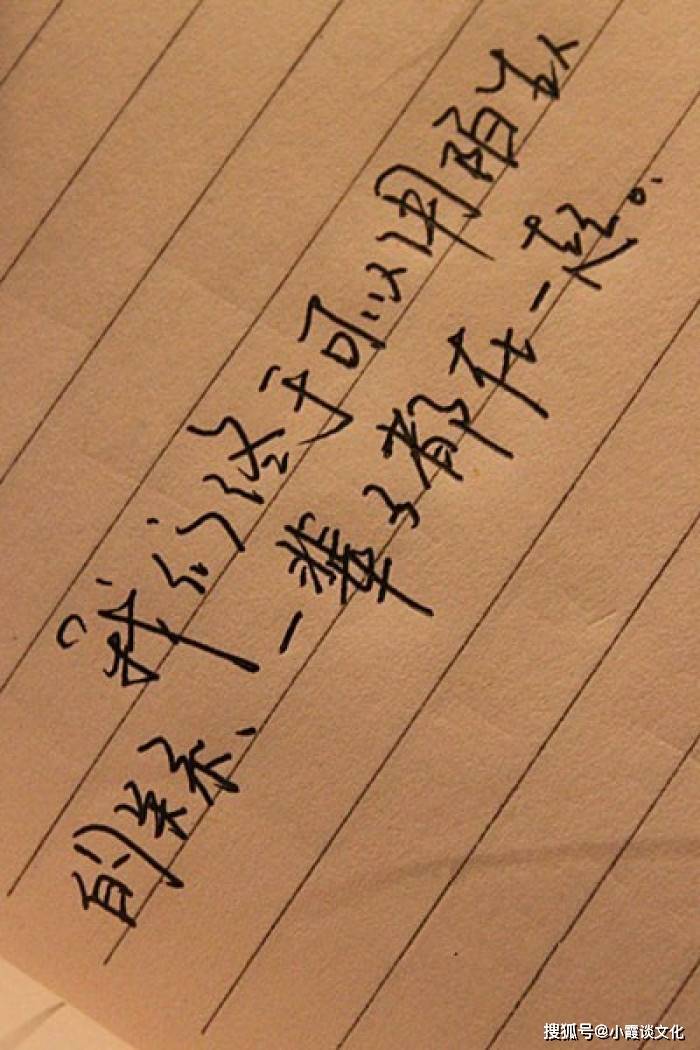 我们终于可以用陌生人
的关系、一辈子都在一起。
搜狐号@小霞谈文化